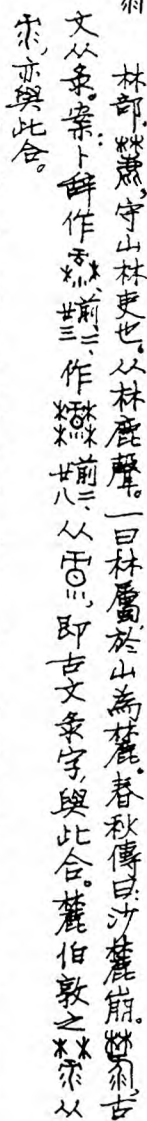 林部。麓，守山林吏也。从林鹿聲。一曰林屬於山為麓。春秋傳曰：沙麓崩。古
文从彔。案：卜辭作前二、廿三、作前二、廿八、从，即古文彔字，與此合。麓伯敦之从
，亦與此合。